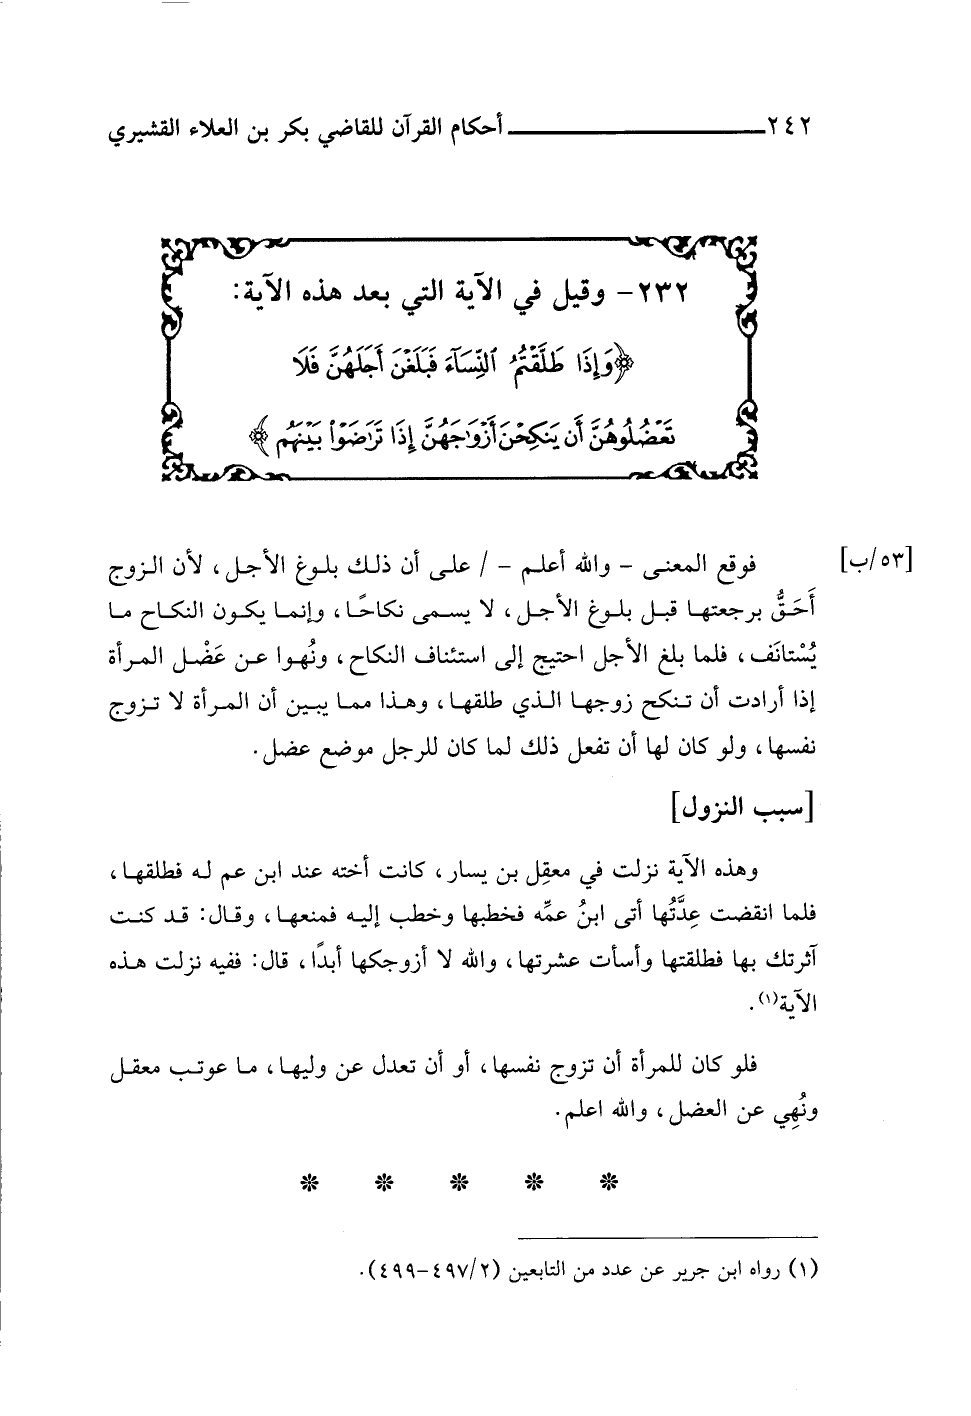 ٢٤٢ أحكام القرآن للقاضي بكر بن العلاء القشيري
٢٣٢- وقيل في الآية التي بعد هذه الآية:
﴿وَإِذَا طَلَّقْتُمُ ٱلنِّسَآءَ فَبَلَغْنَ أَجَلَهُنَّ فَلَا
تَعْضُلُوهُنَّ أَن يَنكِحْنَ أَزْوَٰجَهُنَّ إِذَا تَرَٰضَوْا۟ بَيْنَهُم ﴾
[٥٣/ب] فوقع المعنى - والله أعلم - / على أن ذلك بلوغ الأجل، لأن الزوج
أَحَقُّ برجعتها قبل بلوغ الأجل، لا يسمى نكاحًا، وإنما يكون النكاح ما
يُسْتانَف، فلما بلغ الأجل احتيج إلى استئناف النكاح، ونُهوا عن عَضْل المرأة
إذا أرادت أن تنكح زوجها الذي طلقها، وهذا مما يبين أن المرأة لا تزوج
نفسها، ولو كان لها أن تفعل ذلك لما كان للرجل موضع عضل.
[سبب النزول]
وهذه الآية نزلت في معقِل بن يسار، كانت أخته عند ابن عم له فطلقها،
فلما انقضت عِدَّتُها أتى ابنُ عمِّه فخطبها وخطب إليه فمنعها، وقال: قد كنت
آثرتك بها فطلقتها وأسأت عشرتها، والله لا أزوجكها أبدًا، قال: ففيه نزلت هذه
الآية(١).
فلو كان للمرأة أن تزوج نفسها، أو أن تعدل عن وليها، ما عوتب معقل
ونُهِي عن العضل، والله اعلم.
* * * * *
(١) رواه ابن جرير عن عدد من التابعين (٢/ ٤٩٧-٤٩٩).